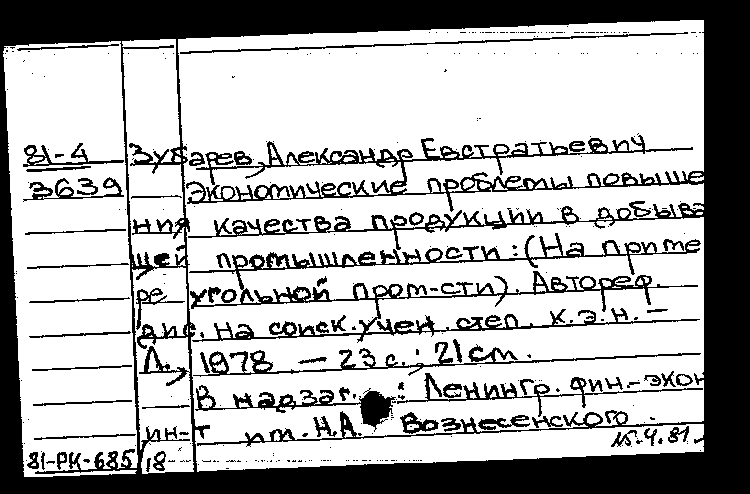 81-4 Зубарев, Александр Евстратьевич
3639 Экономические проблемы повыше
ния качества продукции в добыва
щей промышленности: (На приме
ре угольной пром-сти). Автореф.
дис. на соиск. учен. степ. к.э.н. —
Л., 1978 — 23 с.; 21 см.
В надзаг.: Ленингр. фин.-экон
ин-т им. Н.А. Вознесенского.
15.4.81.
81-РК-685/18